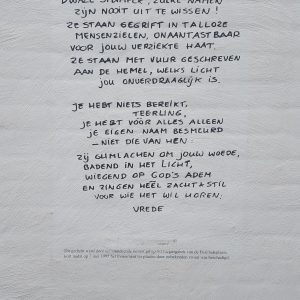 DWAZE STUMPER, ZULKE NAMEN
ZIJN NOOIT UIT TE WISSEN!
ZE STAAN GEGRIFT IN TALLOZE
MENSENZIELEN, ONAANTASTBAAR
VOOR JOUW VERZIEKTE HAAT.
ZE STAAN MET VUUR GESCHREVEN
AAN DE HEMEL, WELKS LICHT
JOU ONVERDRAAGLIJK IS.
JE HEBT NIETS BEREIKT,
TEERLING,
JE HEBT VÓÓR ALLES ALLEEN
JE EIGEN NAAM BESMEURD
—NIET DIE VAN HEN:
ZIJ GLIMLACHEN OM JOUW WOEDE,
BADEND IN HET LICHT,
WIEGEND OP GOD'S ADEM
EN ZINGEN HEEL ZACHT & STIL
VOOR WIE HET WIL HOREN.
VREDE